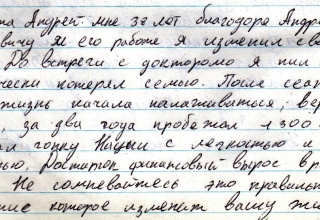 на Андрей мне 32 лет благодоря Андре
вичу и его работе я изменил сво
До встречи с доктором о я пил
чески потерял семью. После сеан
жизнь начала налаживаться, вер
, за два года пробежал 1300
ал гонку Нации с легкостью и
нью. Достаток финансовый вырос в р
Не сомневайтесь это правильн
ние которое изменит вашу жи